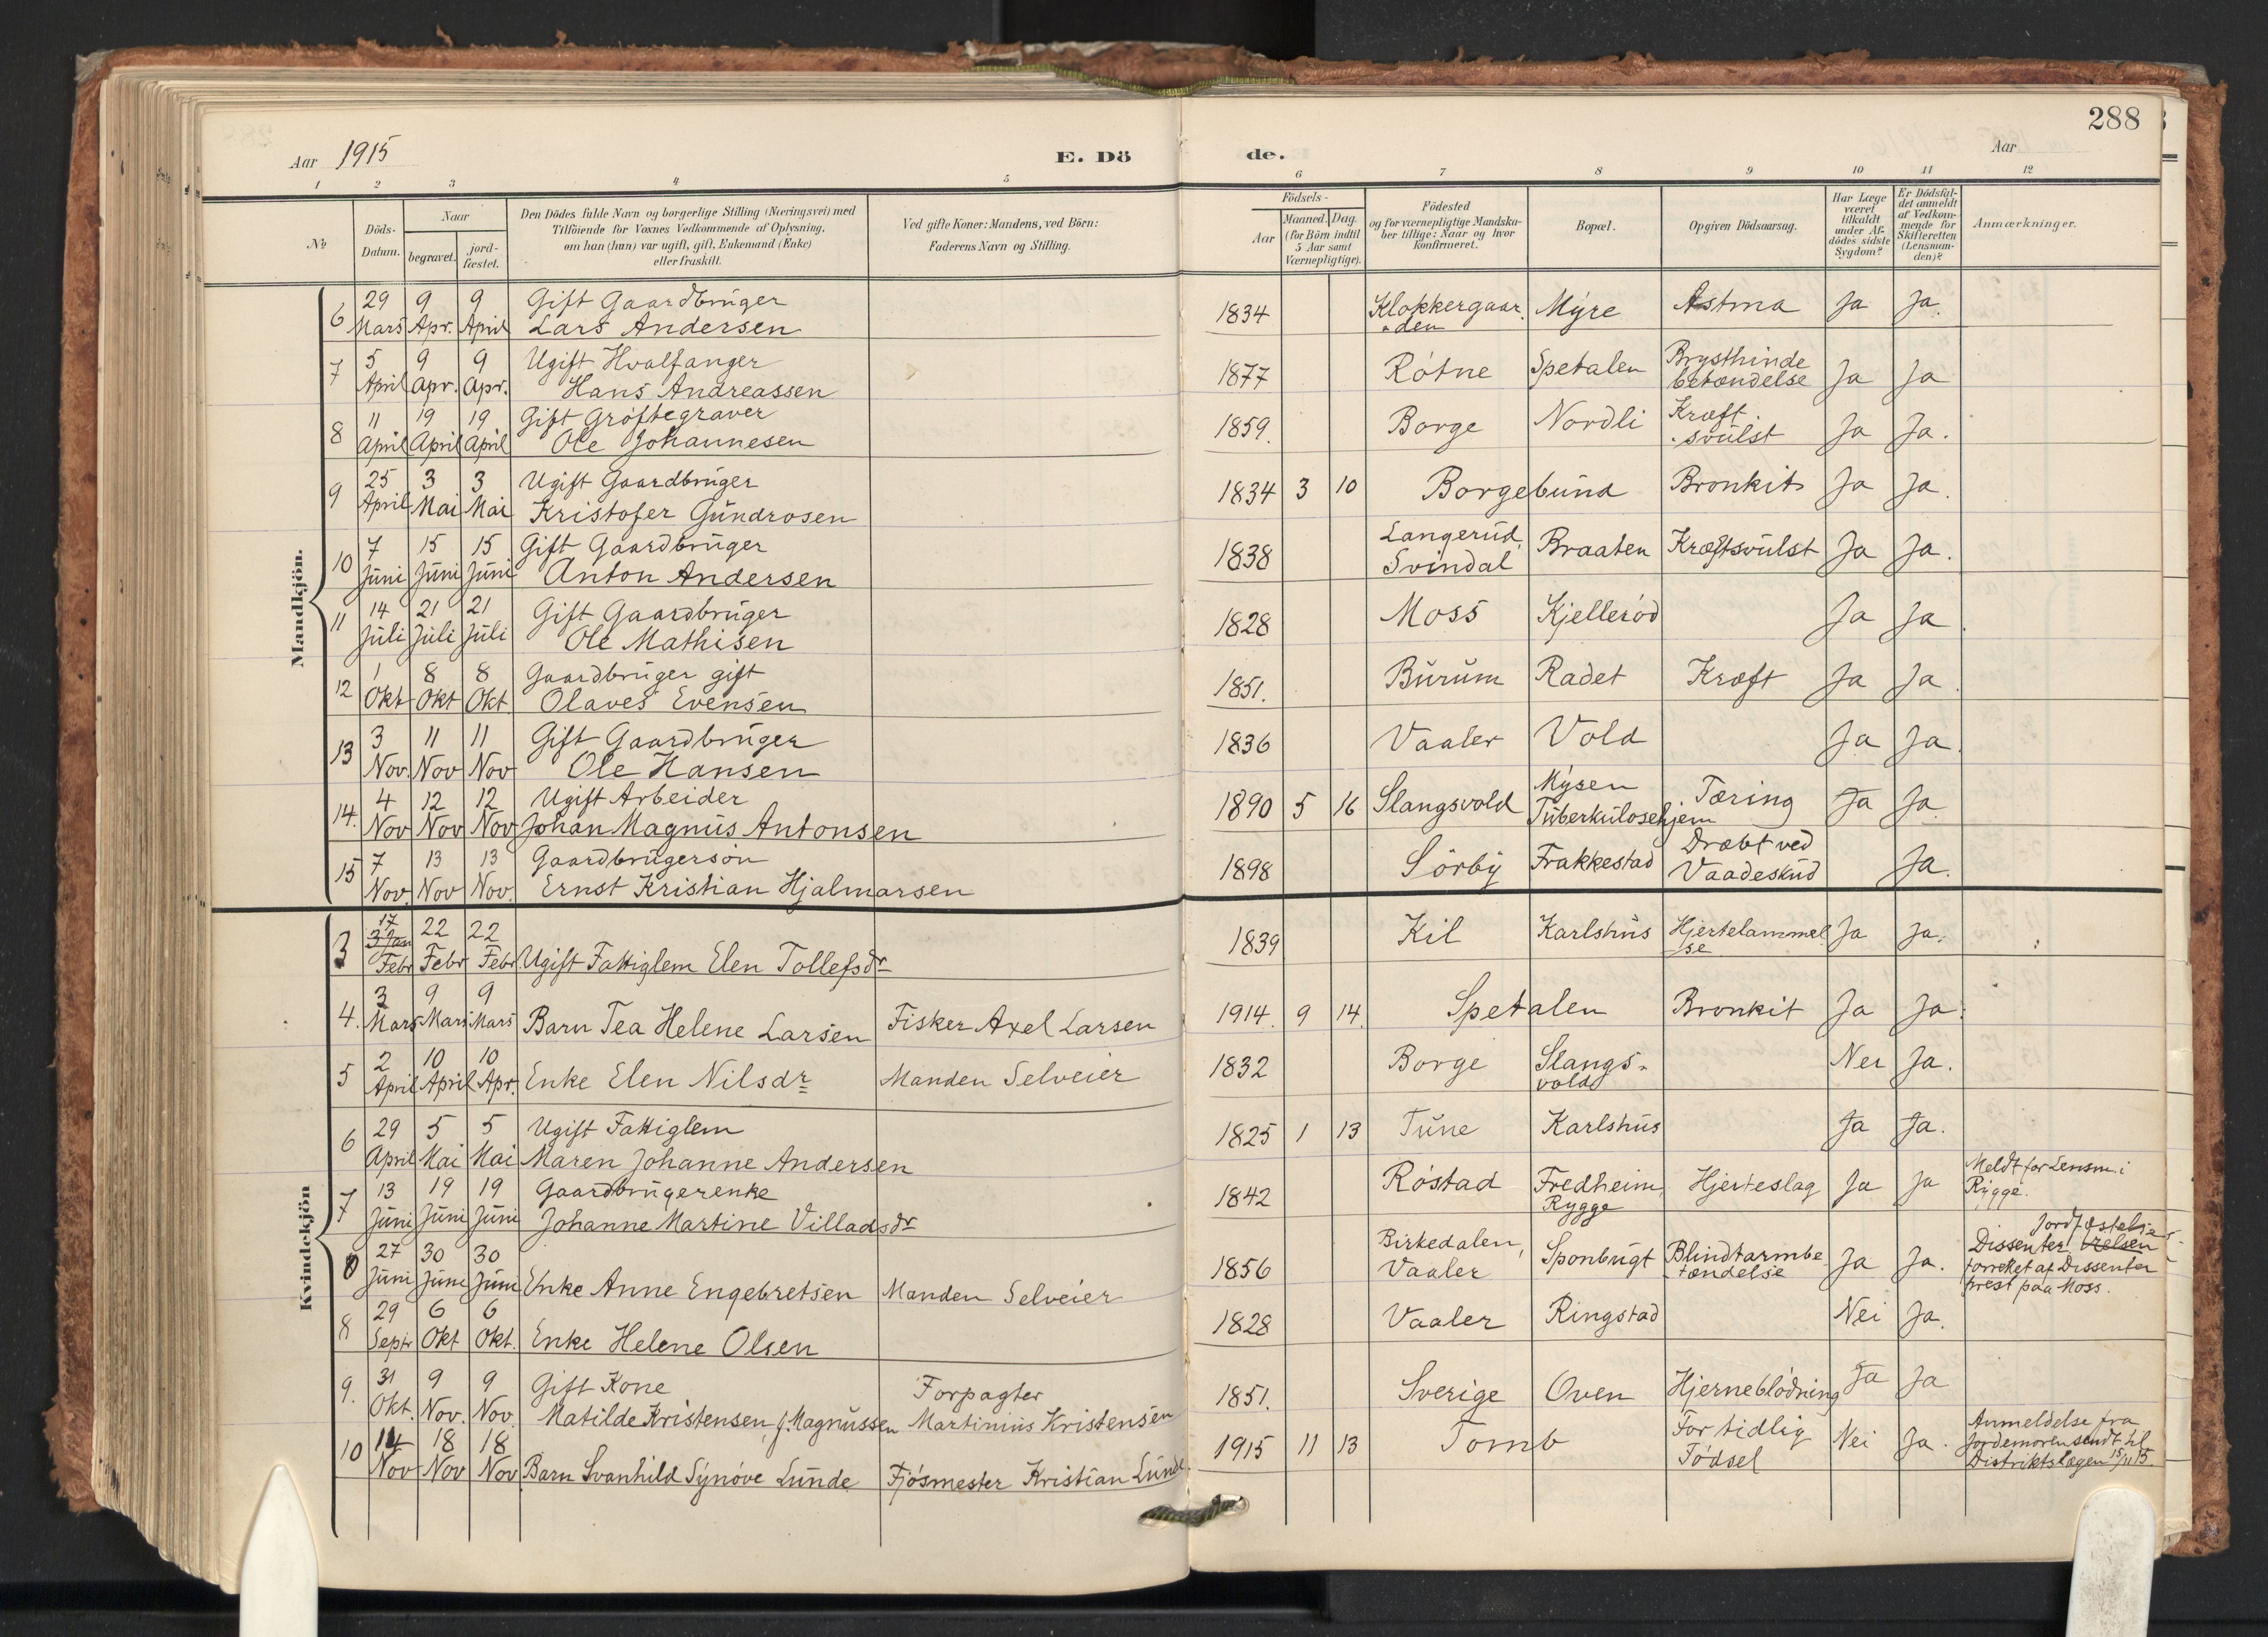 288
Aar 1915
E. Dö
de.
Aar
1 2 3 4 5 6 7 8 9 10 11 12
№
Döds-Datum.
Naar
begravet.
jord-fæstet.
Den Dödes fulde Navn og borgerlige Stilling (Næringsvei) med
Tilföiende for Voxnes Vedkommende af Oplysning,
om han (hun) var ugift, gift, Enkemand (Enke)
eller fraskilt.
Ved gifte Koner: Mandens, ved Börn:
Faderens Navn og Stilling.
Födsels-
Aar
Maaned. Dag.
(for Börn indtil
5 Aar samt
Værnepligtige).
Födested
og for værnepligtige Mandska-
ber tillige: Naar og hvor
konfirmeret.
Bopæl.
Opgiven Dödsaarsag.
Har Læge
været
tilkaldt
under Af-
dödes sidste
Sygdom?
Er Dödsfal-
det anmeldt
af Vedkom-
mende for
Skifteretten
(Lensman-
den)?
Anmærkninger.
Mandkjön.
6 29 Mars 9 Apr. 9 April Gift Gaardbruger
Lars Andersen 1834 Klokkergaar-
den Myre Astma Ja Ja.
7 5 April 9 Apr. 9 Apr. Ugift Hvalfanger
Hans Andreassen 1877 Rötne Spetalen Brysthinde
betændelse Ja Ja
8 11 April 19 April 19 April Gift Gröftegraver
Ole Johannesen 1859. Borge Nordli Kræft
svulst Ja Ja.
9 25 April 3 Mai 3 Mai Ugift Gaardbruger
Kristofer Gundrosen 1834 3 10 Borgebund Bronkit Ja Ja.
10 7 Juni 15 Juni 15 Juni Gift Gaardbruger
Anton Andersen 1838 Langerud,
Svindal Braaten Kræftsvulst Ja Ja.
11 14 Juli 21 Juli 21 Juli Gift Gaardbruger
Ole Mathisen 1828 Moss Kjelleröd Ja Ja.
12 1 Okt 8 Okt 8 Okt. Gaardbruger gift
Olaves Evensen 1851. Burum Radet Kræft Ja Ja
13 3 Nov. 11 Nov 11 Nov Gift Gaardbruger
Ole Hansen 1836 Vaaler Vold Ja Ja.
14. 4 Nov 12 Nov 12 Nov Ugift Arbeider
Johan Magnus Antonsen 1890 5 16 Slangsvold Mysen
Tuberkulosehjem Tæring Ja Ja
15 7 Nov. 13 Nov 13 Nov. Gaardbrugersön
Ernst Kristian Hjalmarsen 1898 Sörby Frakkestad Dræbt ved
Vaadeskud Ja.
Kvindekjön
3 17 3 Jan Febr 22 Febr 22 Febr Ugift Fattiglem Elen Tollefsdr 1839 Kil Karlshus Hjertelammel
se Ja Ja.
4. 3 Mars 9 Mars 9 Mars Barn Tea Helene Larsen Fisker Axel Larsen 1914. 9 14. Spetalen Bronkit Ja Ja.
5 2 April 10 April 10 Apr. Enke Elen Nilsdr Manden Selveier 1832 Borge Slangs-
vold Nei Ja.
6 29 April 5 Mai 5 Mai Ugift Fattiglem
Maren Johanne Andersen 1825 1 13 Tune Karlshus Ja Ja.
7 13 Juni 19 Juni 19 Juni Gaardbrugerenke
Johanne Martine Villadsdr 1842 Röstad Fredheim,
Rygge Hjerteslag Ja Ja Meldt for Lensm. i
Rygge.
27 Juni 30 Juni 30 Juni Enke Anne Engebretsen Manden Selveier 1856 Birkedalen,
Vaaler Sponbugt Blindtarmbe
tændelse Ja Ja. Jordfæstelse
Dissenter,
forrettet af Dissenter
prest paa Moss.
8 29 Septr 6 Okt 6 Okt. Enke Helene Olsen 1828 Vaaler Ringstad Nei Ja.
9. 31 Okt. 9 Nov. 9 Nov. Gift Kone
Matilde Kristensen, f. Magnussen Forpagter
Martinius Kristensen 1851. Sverige Oven Hjerneblödning Ja Ja
10 14 Nov 18 Nov 18 Nov Barn Svanhild Synöve Lunde Fjösmester Kristian Lunde. 1915 11 13 Tomb For tidlig
Födsel Nei Ja. Anmeldelse fra
Jordemoren sendt til
Distriktslægen 15/11 15.